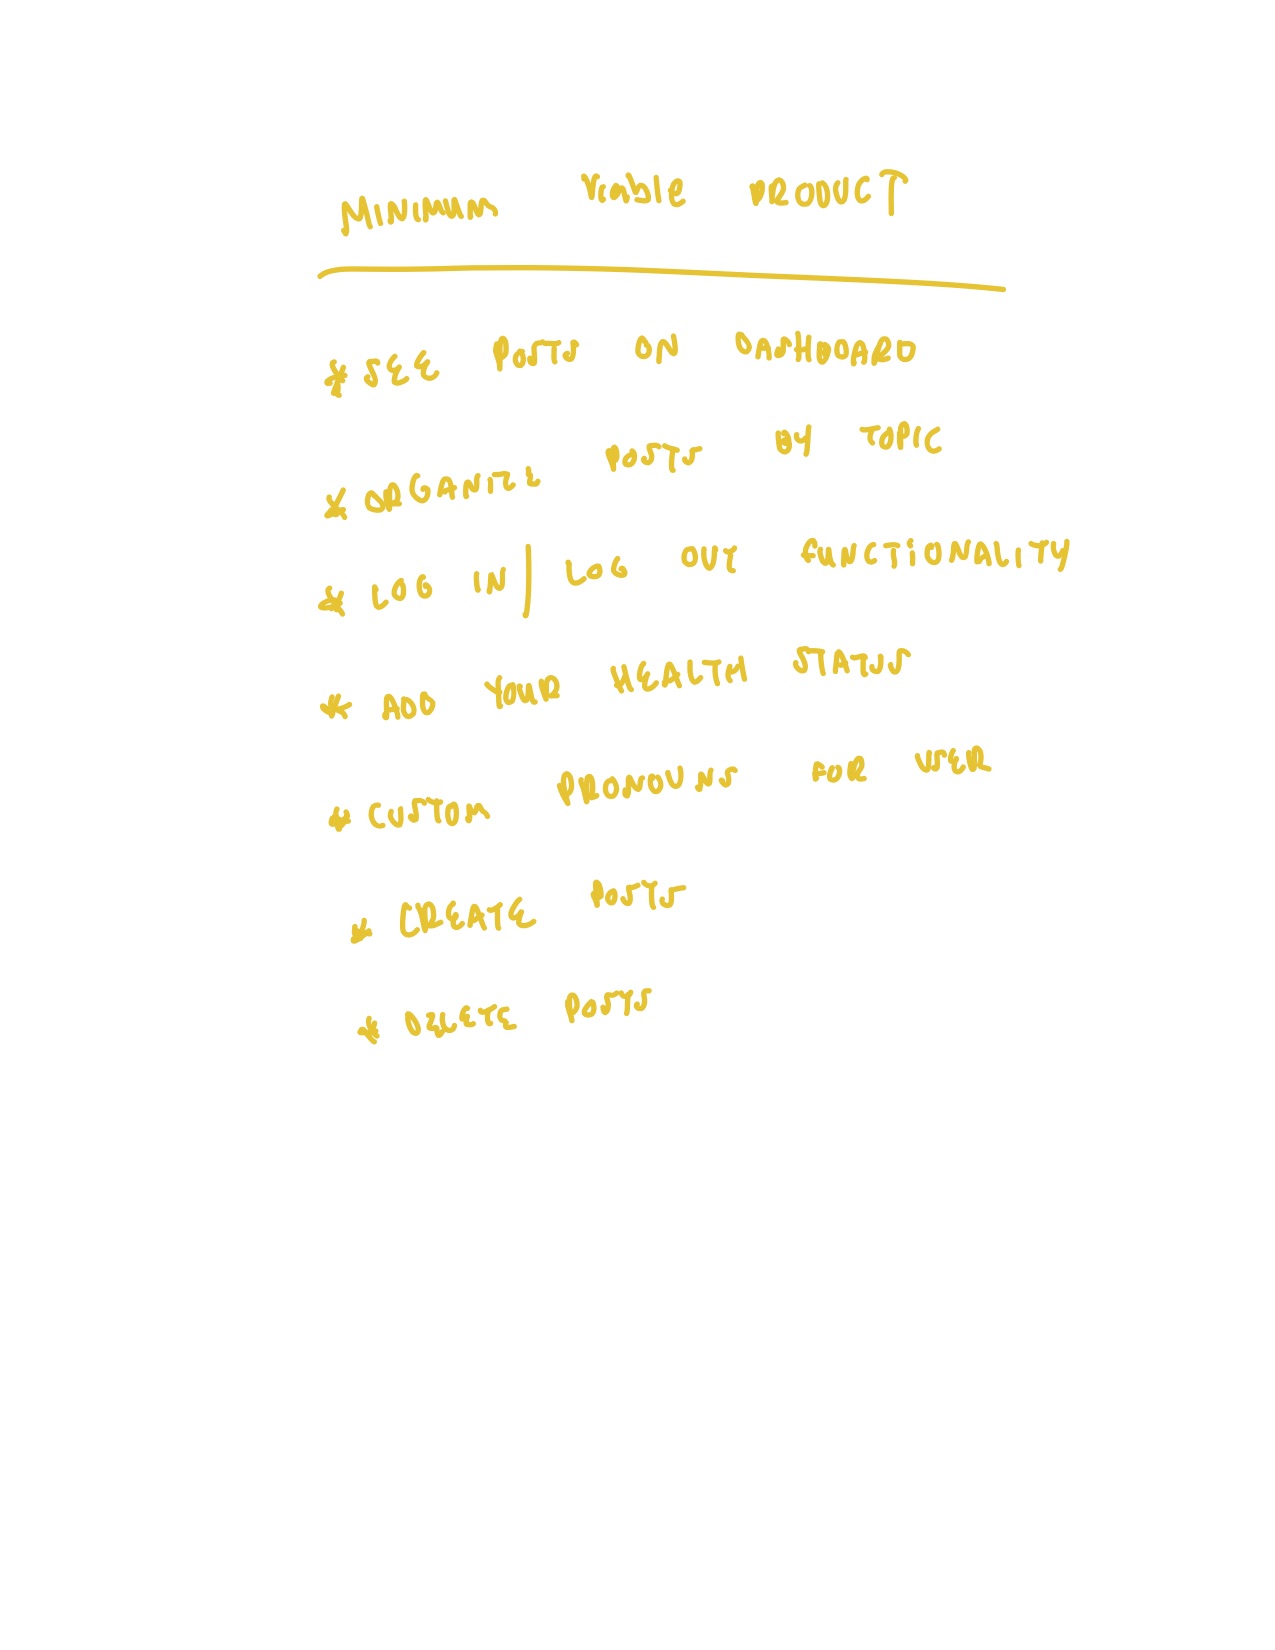 MINIMUM Viable PRODUCT
* SEE POSTS ON DASHBOARD
* ORGANIZE POSTS BY TOPIC
* LOG IN/LOG OUT FUNCTIONALITY
* ADD YOUR HEALTH STATUS
* CUSTOM PRONOUNS FOR USER
* CREATE POSTS
* DELETE POSTS